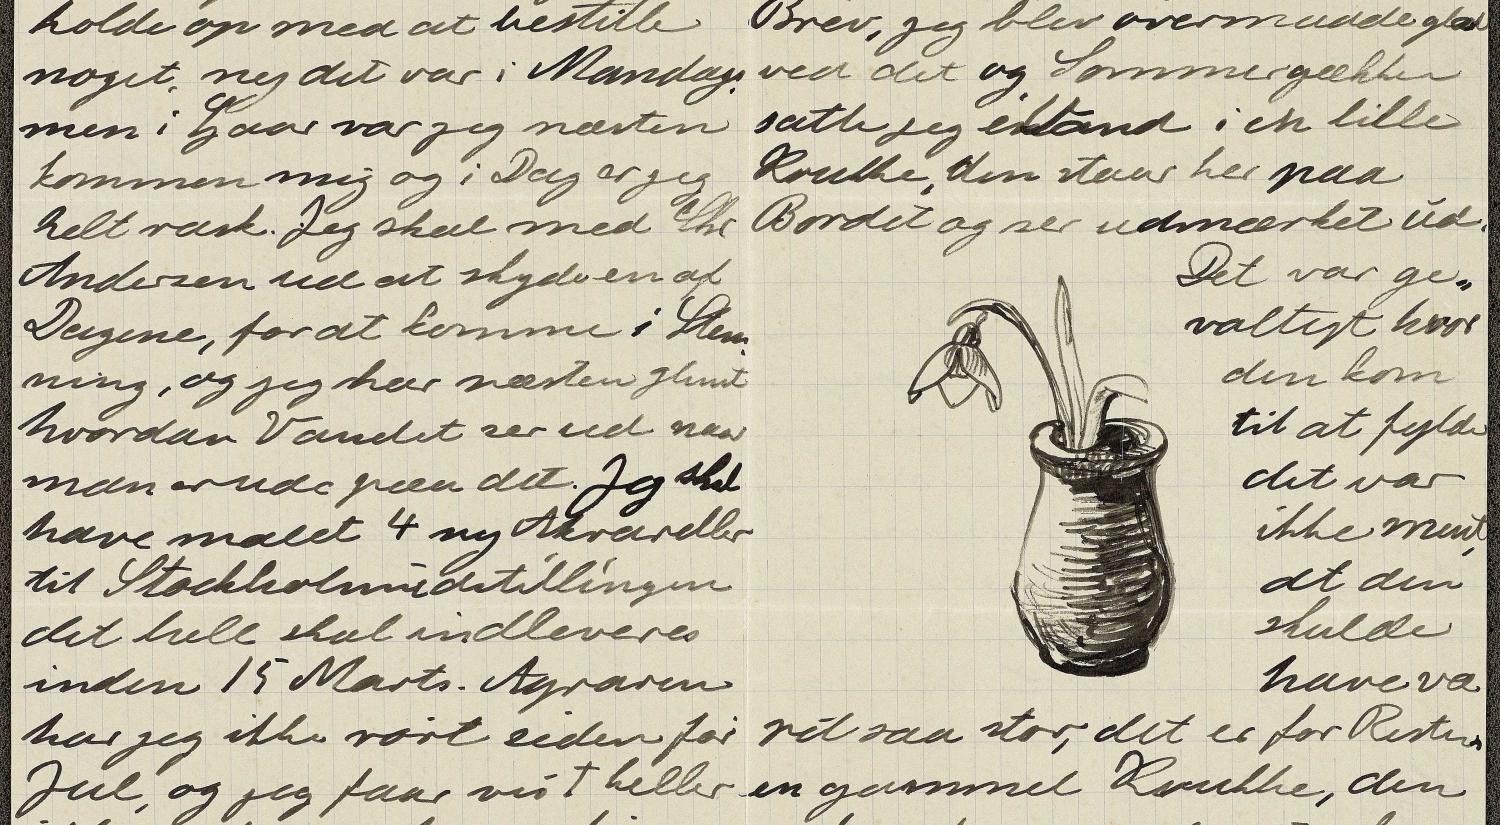 holde op med at bestille
noget, nej det var i Mandags,
men i Gaar var jeg næsten
kommen mig og i Dag er jeg
helt rask. Jeg skal med Chr
Andersen ud at skyde en af
Dagene, for at komme i Stem,
ning, og jeg har næsten glemt
hvordan Vandet ser ud naar
man er ude paa det. Jeg skal
have malet 4 ny Akvareller
til Stockholmudstillingen
det hele skal indleveres
inden 15 Marts. Agraren
har jeg ikke rørt siden før
Jul, og jeg faar vist heller
Brev, jeg blev overmaade glad
ved det og Sommergækken
satte jeg i Vand i en lille
Krukke, den staar her paa
Bordet og ser udmærket ud.
Det var ge„
valtigt hvor
den kom
til at fylde
det var
ikke ment,
at den
skulde
have væ
rét saa stor, det er for Resten
en gammel Krukke, den